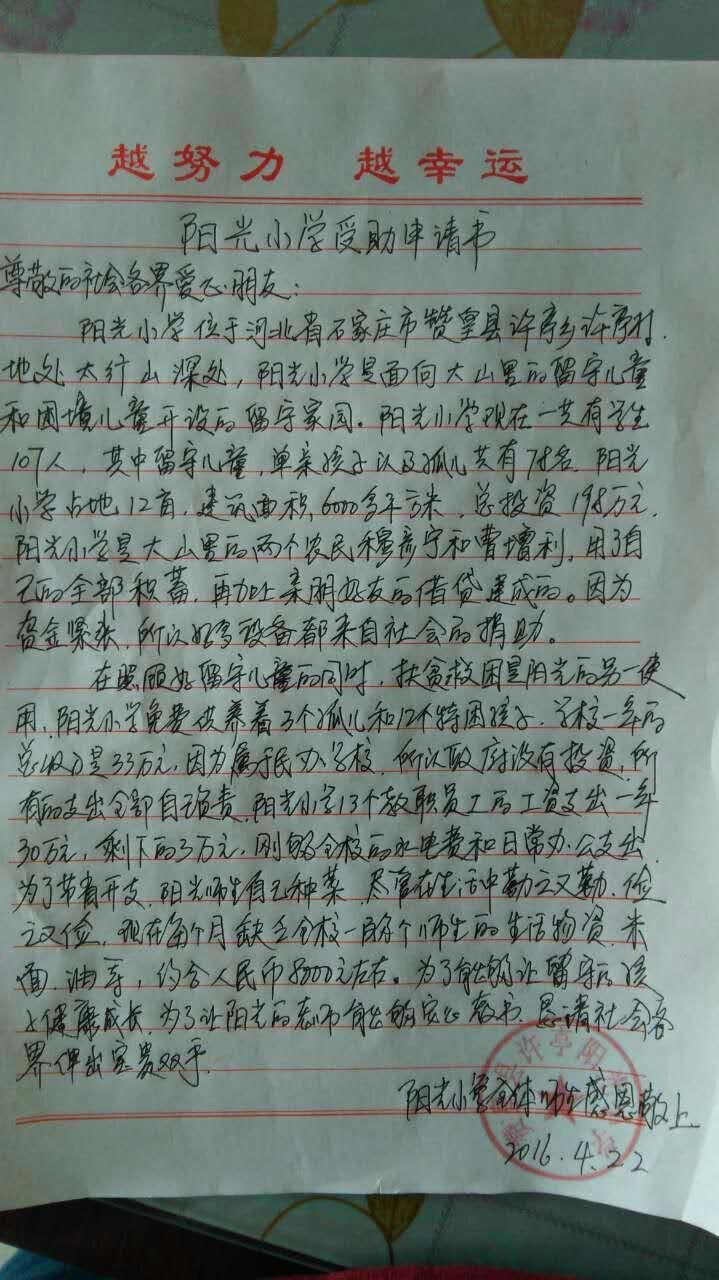 越努力 越幸运
阳光小学受助申请书
尊敬的社会各界爱心朋友：
阳光小学位于河北省石家庄市赞皇县许亭乡许亭村.
地处太行山深处，阳光小学是面向大山里的留守儿童
和困境儿童开设的留守家园。阳光小学现在一共有学生
107人，其中留守儿童，单亲孩子以及孤儿共有78名.阳光
小学占地12亩，建筑面积6000多平方米，总投资198万元.
阳光小学是大山里的两个农民穆彦宁和曹增利，用了自
己的全部积蓄，再加上亲朋好友的借贷建成的。因为
资金紧张，所以好多设备都来自社会的捐助。
在照顾好留守儿童的同时，扶贫救困是阳光的另一使
用，阳光小学免费供养着3个孤儿和12个特困孩子.学校一年的
总收入是33万元，因为属于民办学校，所以政府没有投资，所
有的支出全部自负责.阳光小学13个教职员工的工资支出一年
30万元，剩下的3万元，刚够全校的水电费和日常办公支出.
为了节省开支，阳光师生自己种菜，尽管在生活中勤之又勤、俭
之又俭，现在每个月缺乏全校一百多个师生的生活物资，米
面、油等，约合人民币8000元左右。为了能够让留守的孩
子健康成长，为了让阳光的老师能够安心教书，恳请社会各
界伸出宝贵双手.
阳光小学全体师生感恩敬上
2016.4.22
许亭阳光